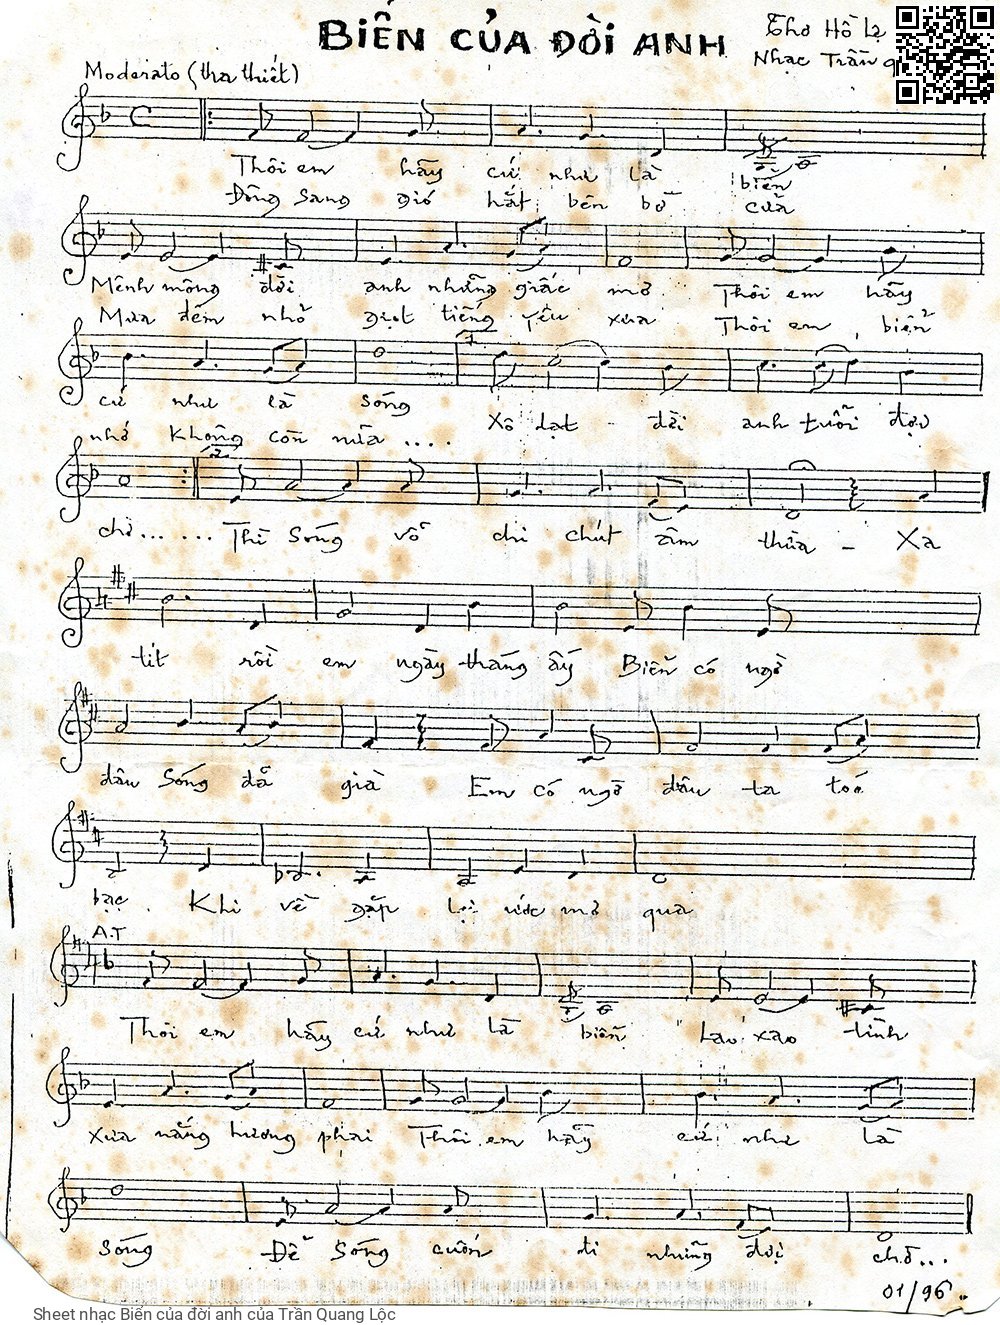 BIỂN CỦA ĐỜI ANH
Thơ Hồ Lệ
Nhạc Trần q
Moderato (tha thiết)
Thôi em hãy cứ như là biển
Đông sang gió hắt bên bờ cửa
Mênh mông đời anh những giấc mơ Thôi em hãy
Mưa đêm nhỏ giọt tiếng yêu xưa Thôi em, biển
cứ như là sóng
1
Xô dạt đời anh tuổi đợi
nhớ không còn nữa ....
2
chờ ...... Thì sóng vỗ chi chút âm thừa - Xa
tít rồi em ngày tháng ấy Biển có ngờ
đâu sóng đã già Em có ngờ đâu ta tóc
bạc. Khi về gặp lại ước mơ qua
A.T
Thôi em hãy cứ như là biển Lao xao tình
xưa nắng hương phai Thôi em hãy cứ như là
sóng Để sóng cuốn đi những đợi chờ...
01/96
Sheet nhạc Biển của đời anh của Trần Quang Lộc